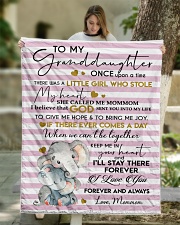 TO MY
Granddaughter
ONCE upon a time
THERE WAS A LITTLE GIRL WHO STOLE
My heart
SHE CALLED ME MOMMOM
I believe that GOD SENT YOU INTO MY LIFE
TO GIVE ME HOPE & TO BRING ME JOY.
IF THERE EVER COMES A DAY
When we can't be together
KEEP ME IN
your heart
AND
I'LL STAY THERE
FOREVER
I Love You
FOREVER AND ALWAYS
Love, Mommom